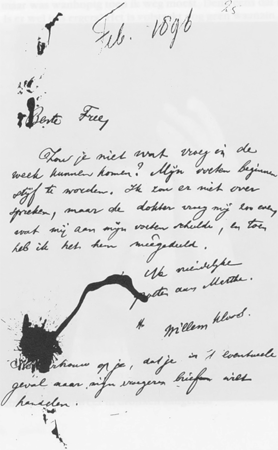 25
Feb. 1896
Beste Frey
Zou je niet wat vroeg in de
week kunnen komen? Mijn voeten beginnen
stijf te worden. Ik zou er niet over
spreken, maar de dokter vroeg mij zoo even,
wat mij aan mijn voeten scheelde, en toen
heb ik het hem meêgedeeld.
Me vriendelijke
groeten aan Marthe.
tt
Willem Kloos.
vertrouw op je, dat je in 't eventueele
geval naar mijn vroegeren brief wilt
handelen.